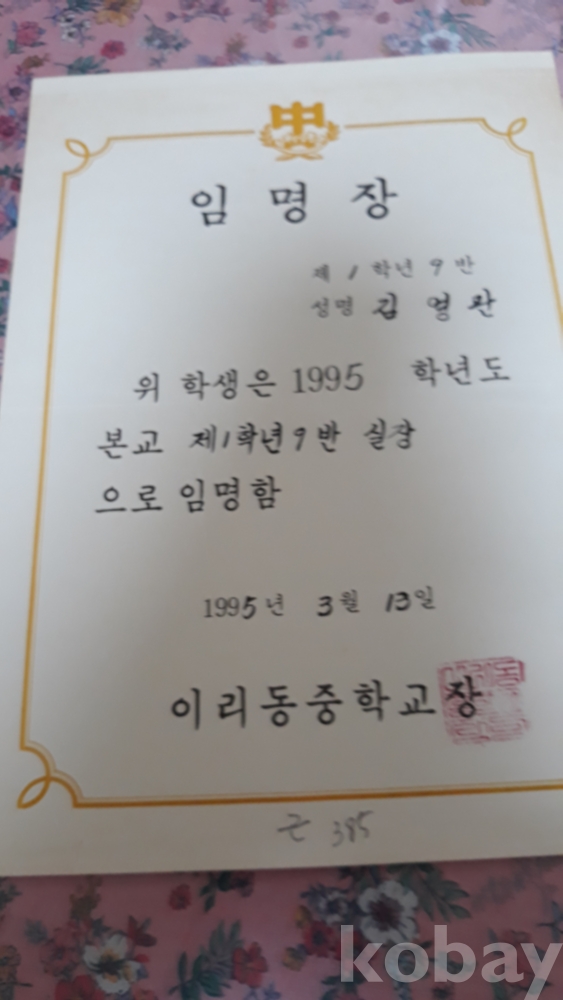 中
임명장
제 1 학년 9 반
성명 김 영 관
위 학생은 1995 학년도
본교 제1학년9반 실장
으로 임명함
1995년 3월 13일
이리동중학교장
385
kobay